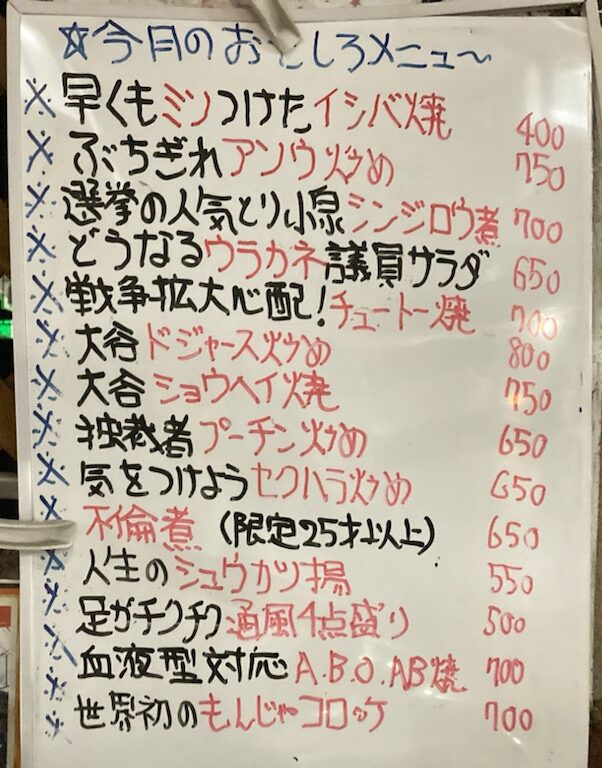 ☆今月のおもしろメニュー
※早くもミソつけたイシバ焼 400
※ぶちぎれアソウ炒め 750
※選挙の人気とり小泉シンジロウ煮 700
※どうなるウラカネ議員サラダ 650
※戦争拡大心配!チュートー焼 700
※大谷ドジャース炒め 800
※大谷ショウヘイ焼 750
※独裁者プーチン炒め 650
※気をつけようセクハラ炒め 650
※不倫煮(限定25才以上) 650
※人生のシュウカツ揚 550
※足がチクチク通風4点盛り 500
※血液型対応A.B.O.AB焼 700
※世界初のもんじゃコロッケ 700